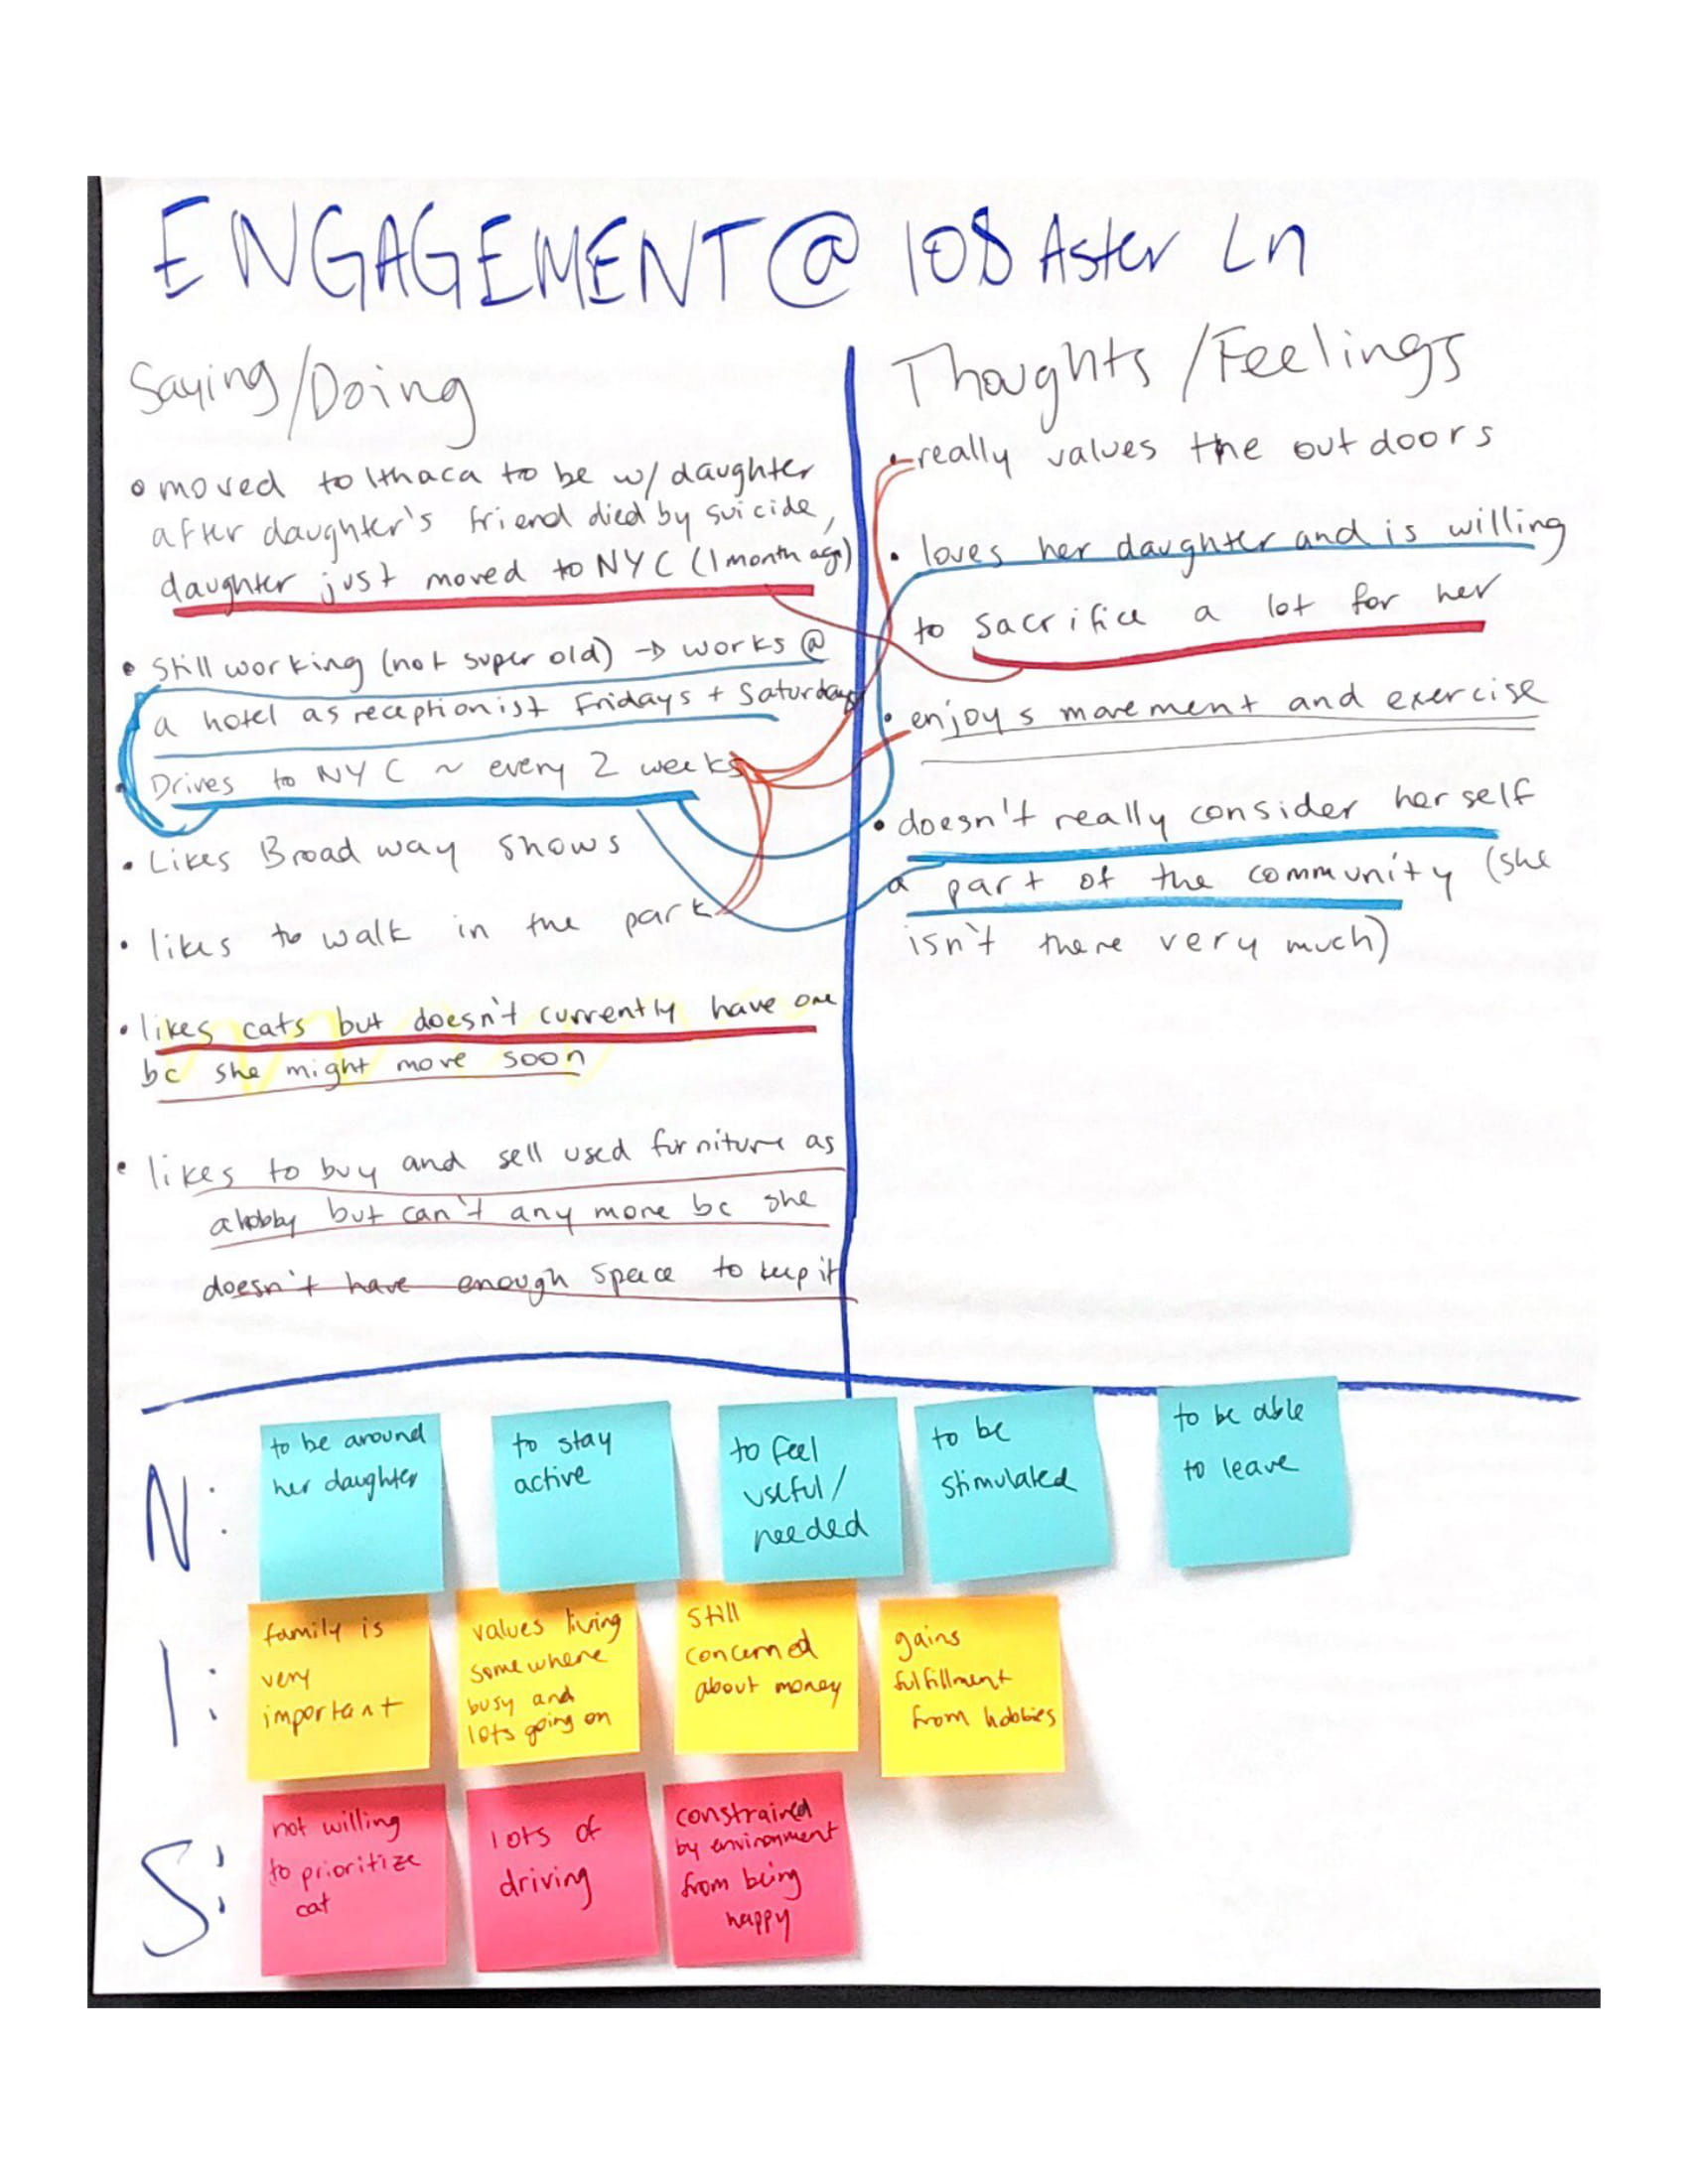 ENGAGEMENT @ 108 Aster Ln
Saying/Doing
• moved to Ithaca to be w/ daughter
after daughter's friend died by suicide,
daughter just moved to NYC (1 month ago)
• Still working (not super old) → works @
a hotel as receptionist Fridays + Saturdays
• Drives to NYC ~ every 2 weeks
• Likes Broadway shows
• likes to walk in the park
• likes cats but doesn't currently have one
bc she might move soon
• likes to buy and sell used furniture as
a hobby but can't any more bc she
doesn't have enough space to keep it
Thoughts/Feelings
• really values the outdoors
• loves her daughter and is willing
to sacrifice a lot for her
• enjoys movement and exercise
• doesn't really consider herself
a part of the community (she
isn't there very much)
N:
to be around
her daughter
to stay
active
to feel
useful/
needed
to be
stimulated
to be able
to leave
I:
family is
very
important
values living
somewhere
busy and
lots going on
still
concerned
about money
gains
fulfillment
from hobbies
S:
not willing
to prioritize
cat
lots of
driving
constrained
by environment
from being
happy